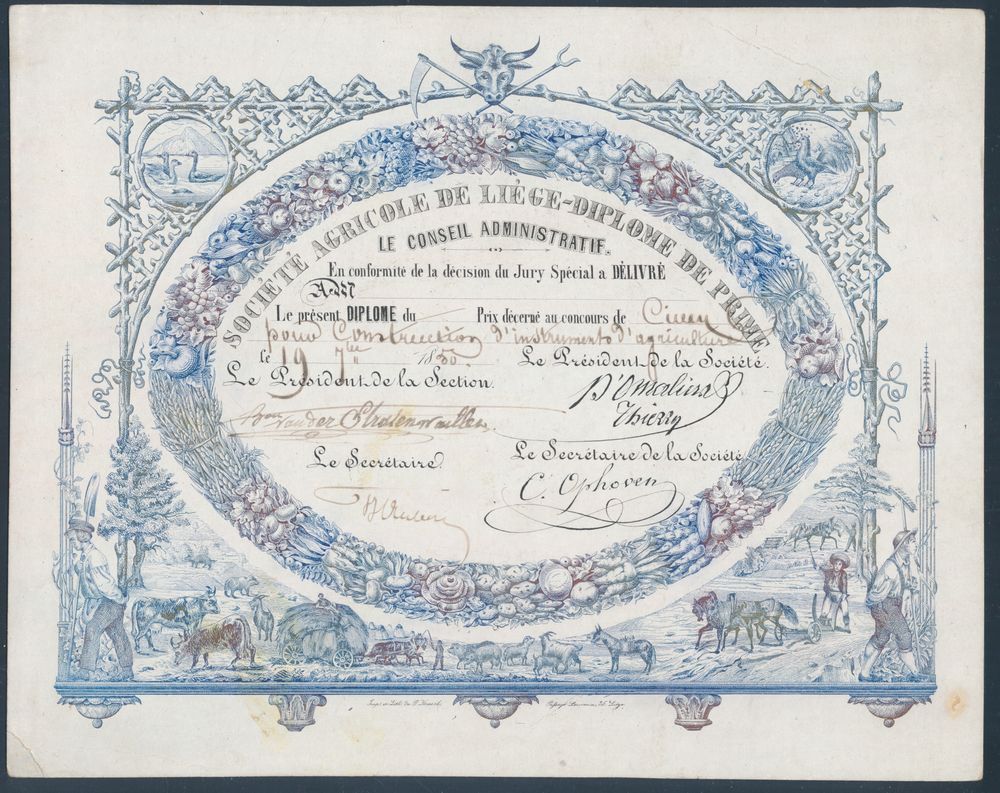 SOCIÉTÉ AGRICOLE DE LIÉGE-DIPLOME DE PRIME
LE CONSEIL ADMINISTRATIF.
En conformité de la décision du Jury Spécial a DÉLIVRÉ
A M
Le présent DIPLOME du Prix décerné au concours de Ciney
pour Construction d'instruments d'agriculture
le 19 7bre 1850. Le Président de la Société.
Le Président de la Section.
D'Omalius
Thierry
Bon van der Straten
Le Secrétaire Le Secrétaire de la Société
C. Ophoven